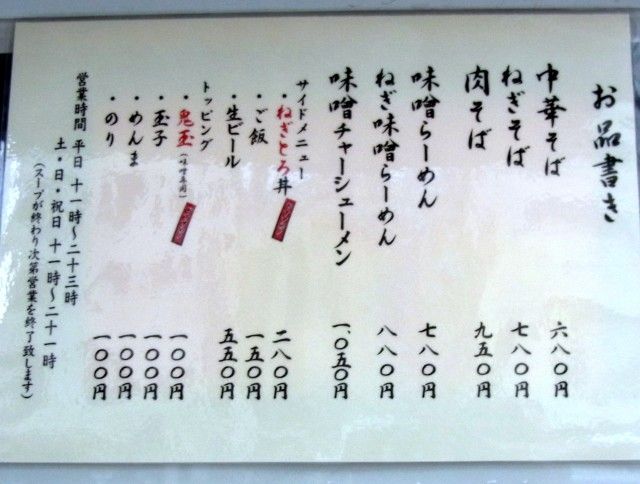 お品書き
中華そば 六八〇円
ねぎそば 七八〇円
肉そば 九五〇円
味噌らーめん 七八〇円
ねぎ味噌らーめん 八八〇円
味噌チャーシューメン 一、〇五〇円
サイドメニュー
・ねぎとろ丼 二八〇円
・ご飯 一五〇円
・生ビール 五五〇円
トッピング
・鬼玉 一〇〇円
・玉子 一〇〇円
・めんま 一〇〇円
・のり 一〇〇円
営業時間 平日 十一時~二十三時
土・日・祝日 十一時~二十一時
(スープが終わり次第営業を終了致します)